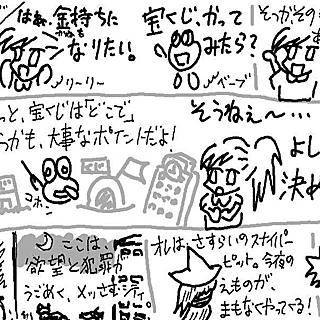 はぁ、金持ちに
かねも
なりたい。
リーリー
宝くじ、かって
みたら?
ベーブ
そっかその
っと、宝くじは「どこで」
うかも、大事なポイントだよ!
コホン
そうねぇ〜…
よし
決め
ここは、
欲望と犯罪が
うごめく、メッさむシティ
オレは、さすらいのスナイパー
ピット。今夜の
えものが、
まもなくやってくる!